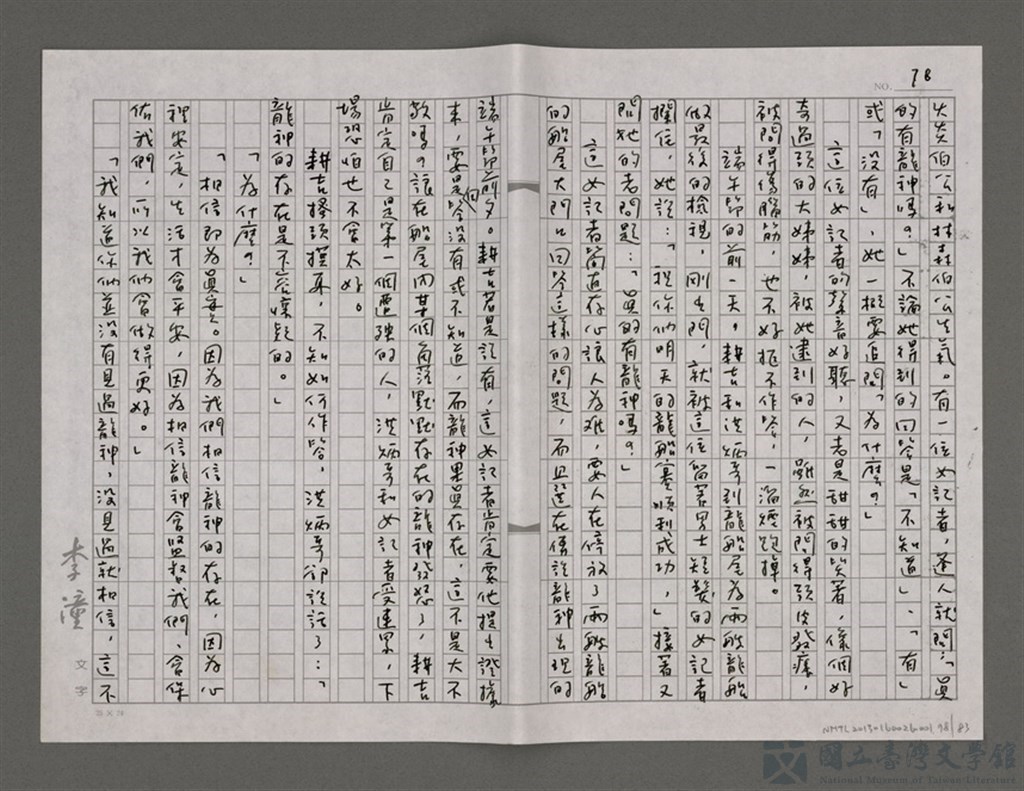 NO. 78
火炎伯公和林森伯公生氣。有一位女記者，逢人就問：「真
的有龍神嗎？」不論她得到的回答是「不知道」、「有」
或「沒有」，她一概要追問「為什麼？」
這位女記者的聲音好聽，又老是甜甜的笑著，像個好
奇過頭的大姊姊，被她逮到的人，雖然被問得頭皮發癢，
被問得傷腦筋，也不好拒不作答，一溜煙跑掉。
端午節的前一天，耕吉和洪炳哥到龍船屋為兩艘龍船
做最後的檢視，剛出門，就被這位留著男士短髮的女記者
攔住，她說：「祝你們明天的龍船賽順利成功，」接著又
問她的老問題：「真的有龍神嗎？」
這女記者簡直存心讓人為難，要人在停放了兩艘龍船
的船屋大門口回答這樣的問題，而且還在傳說龍神出現的
端午節前夕。耕吉若是說有，這女記者肯定要他提出證據
來，要是回答沒有或不知道，而龍神果真存在，這不是大不
敬嗎？讓在船屋內某個角落默默存在的龍神發怒了，耕吉
肯定自己是第一個遭殃的人，洪炳哥和女記者受連累，下
場恐怕也不會太好。
耕吉搔頭摸耳，不知如何作答，洪炳哥卻說話了：「
龍神的存在是不容懷疑的。」
「為什麼？」
「相信即為真實。因為我們相信龍神的存在，因為心
裡安定，生活才會平安，因為相信龍神會監督我們、會保
佑我們，所以我們會做得更好。」
「我知道你們並沒有見過龍神，沒見過就相信，這不
李潼
文字
NMTL20150160026001 98/83
國立臺灣文學館
National Museum of Taiwan Literature